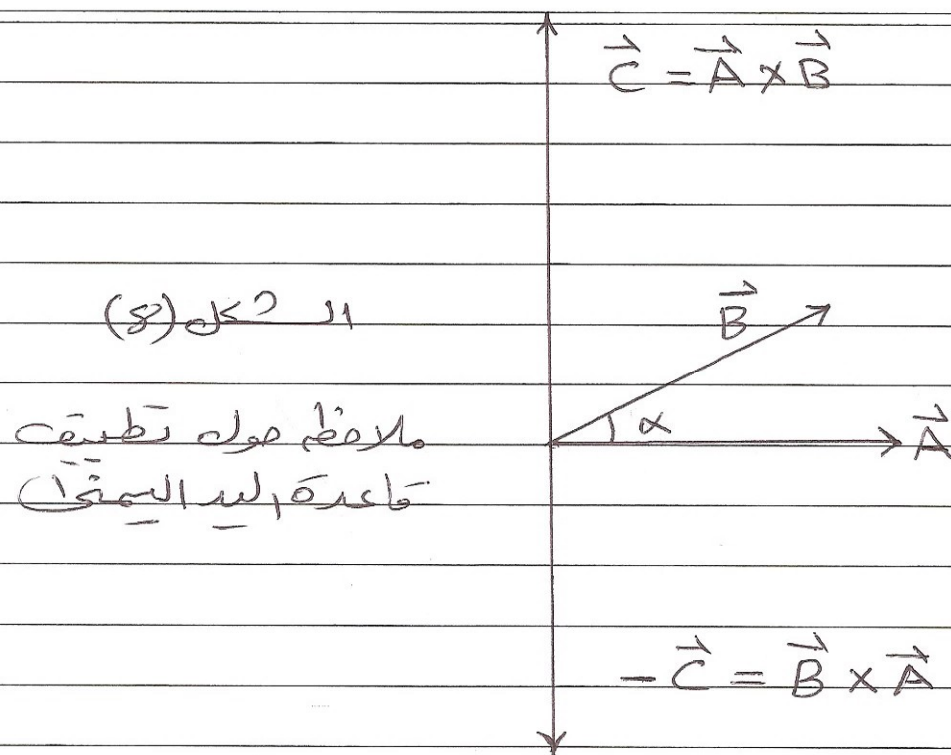 C⃗ = A⃗ × B⃗
الشكل (8)
B⃗
α
A⃗
ملاحظة حول تطبيق
قاعدة اليد اليمنى
-C⃗ = B⃗ × A⃗